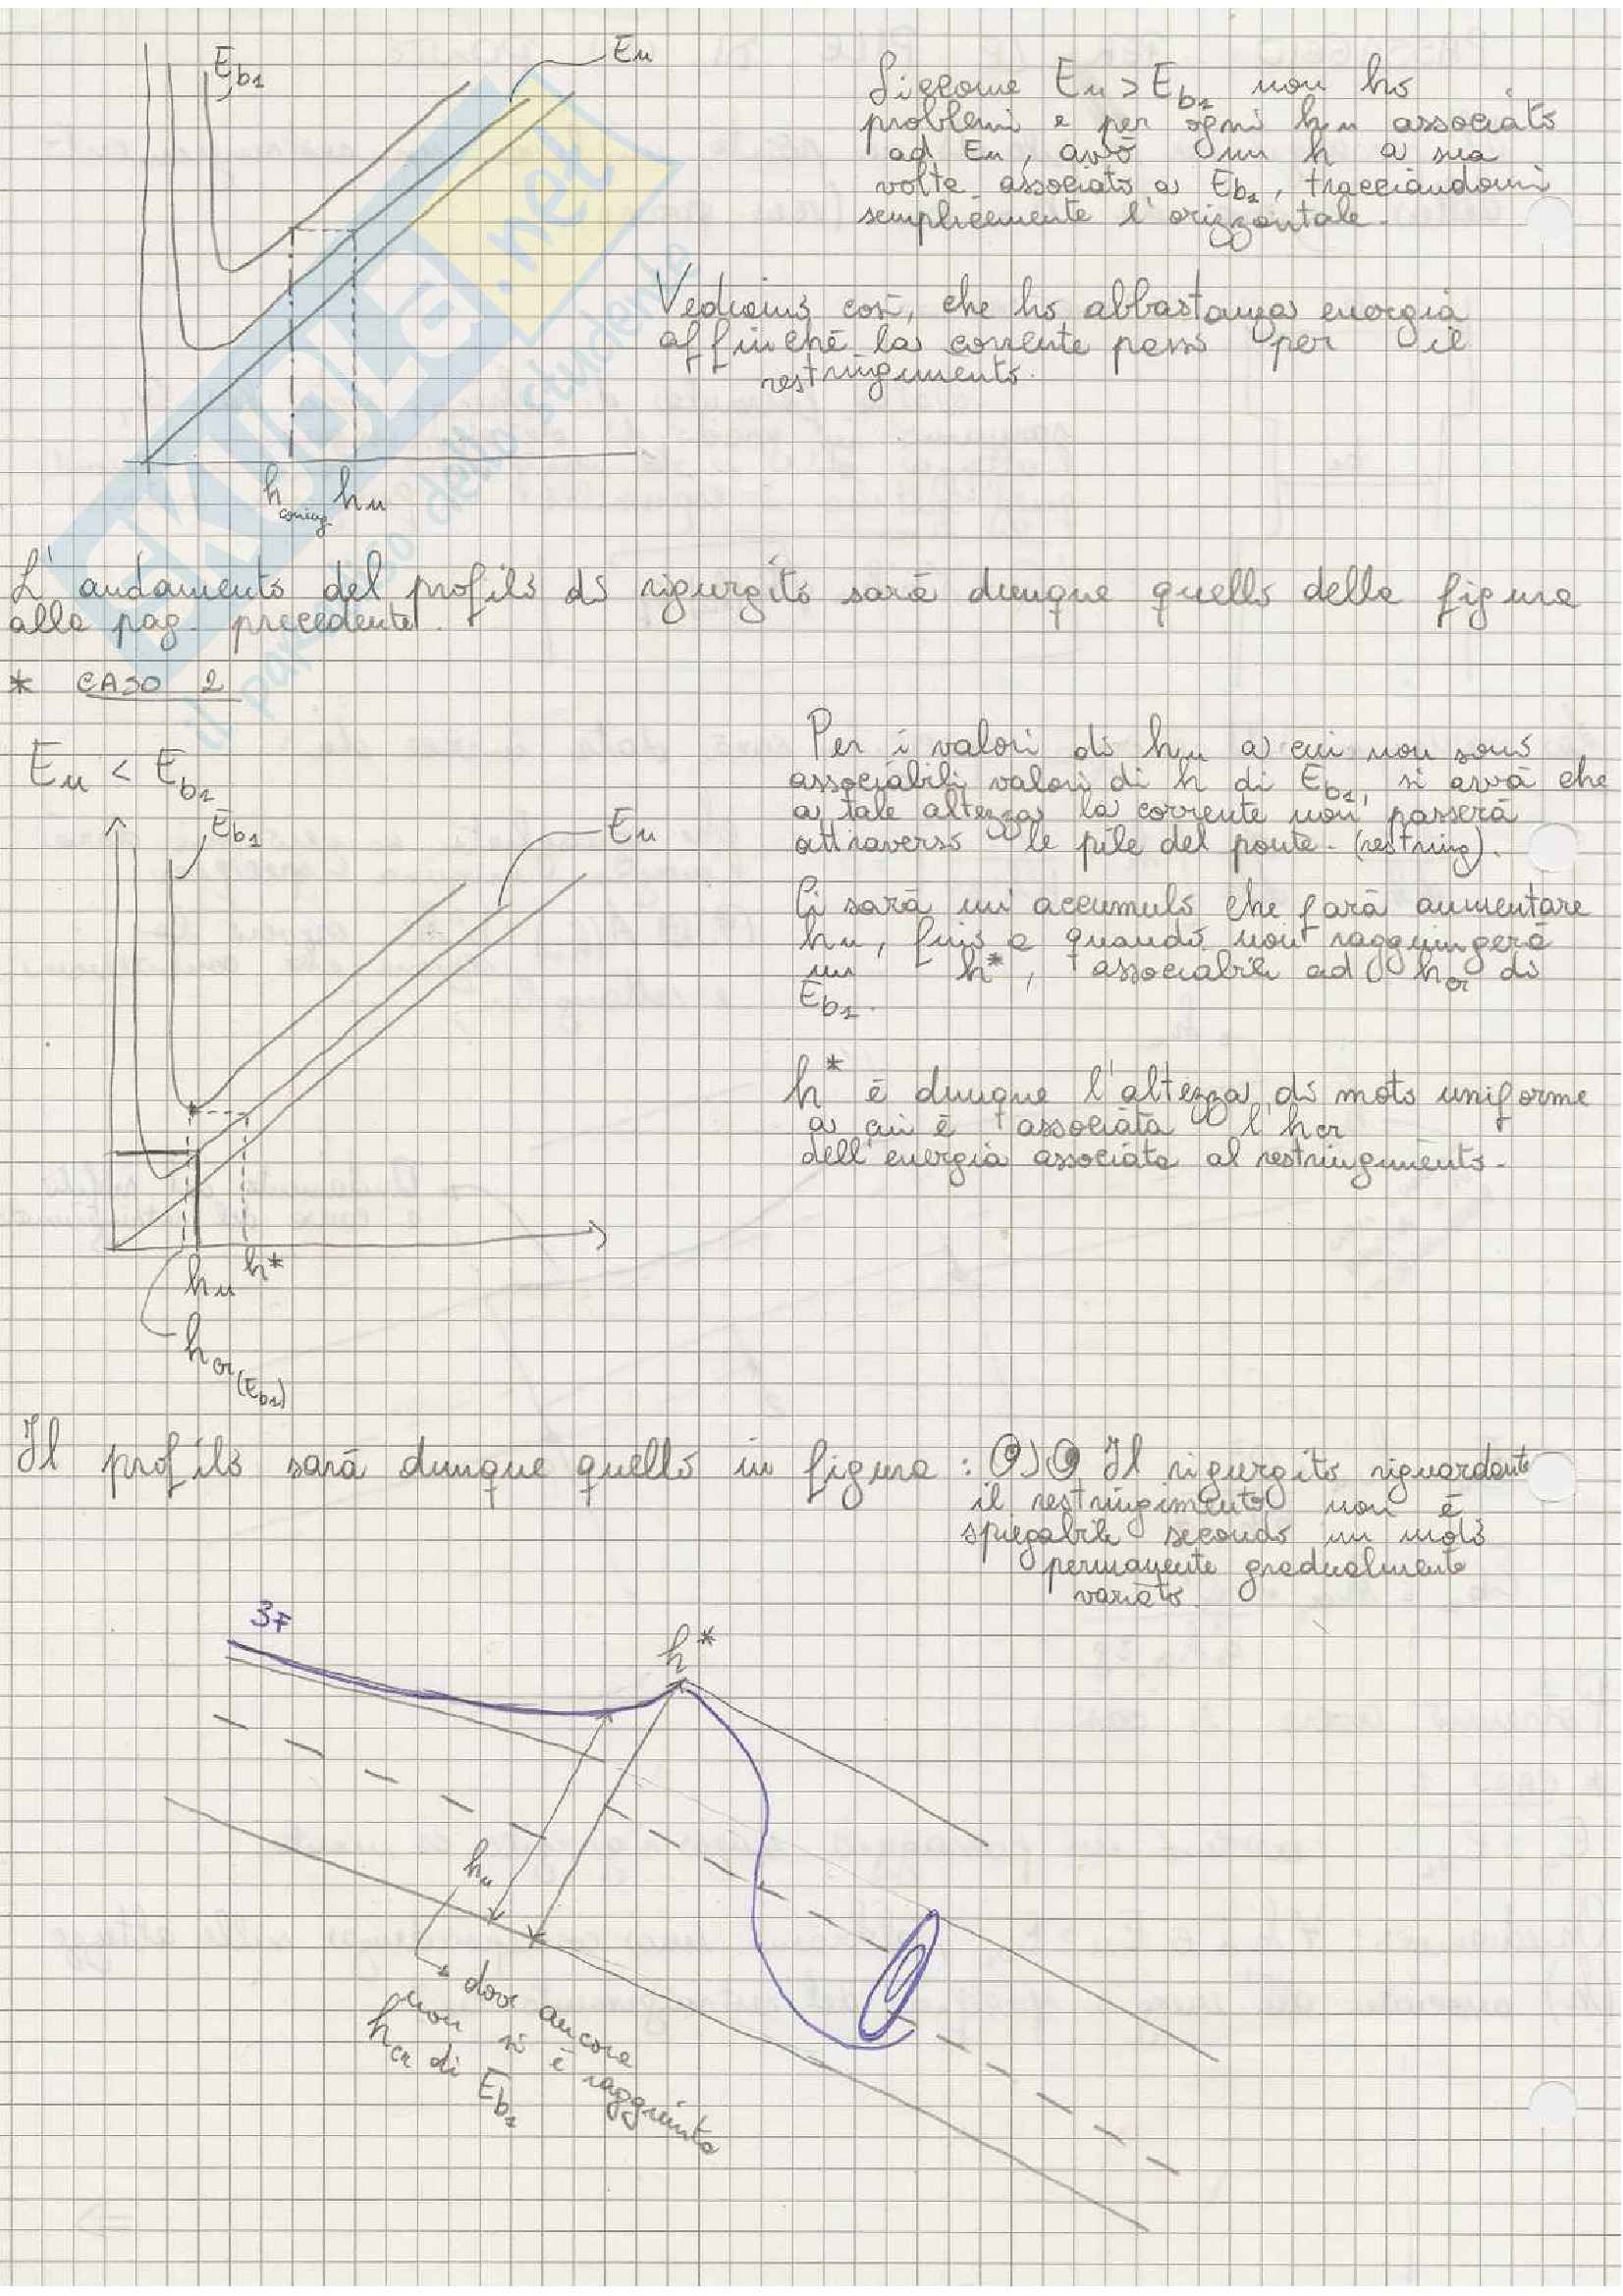 E_b1
Eu
Siccome Eu > E_b1 non ho
problemi e per ogni hu associato
ad Eu, avrò un h a sua
volta associato a E_b1, tracciandomi
semplicemente l'orizzontale.
Vediamo così, che ho abbastanza energia
affinché la corrente passi per il
restringimento.
h hu
SKUOLA.net
il paradiso dello studente
L'andamento del profilo di rigurgito sarà dunque quello della figura
alla pag. precedente.
* CASO 2
Eu < E_b1
E_b1
Eu
Per i valori di hu a cui non sono
associabili valori di h di E_b1, si avrà che
a tale altezza la corrente non passerà
attraverso le pile del ponte. (restring).
Ci sarà un accumulo che farà aumentare
hu, fino a quando non raggiungerà
un h*, associabile ad hcr di
E_b1.
h* è dunque l'altezza di moto uniforme
a cui è associata l'hcr
dell'energia associata al restringimento.
hu h*
hcr(E_b1)
Il profilo sarà dunque quello in figura : OJO Il rigurgito riguardante
il restringimento non è
spiegabile secondo un moto
permanente gradualmente
variato.
3F
h*
hu
dove ancora
non si è raggiunto
hcr di E_b1